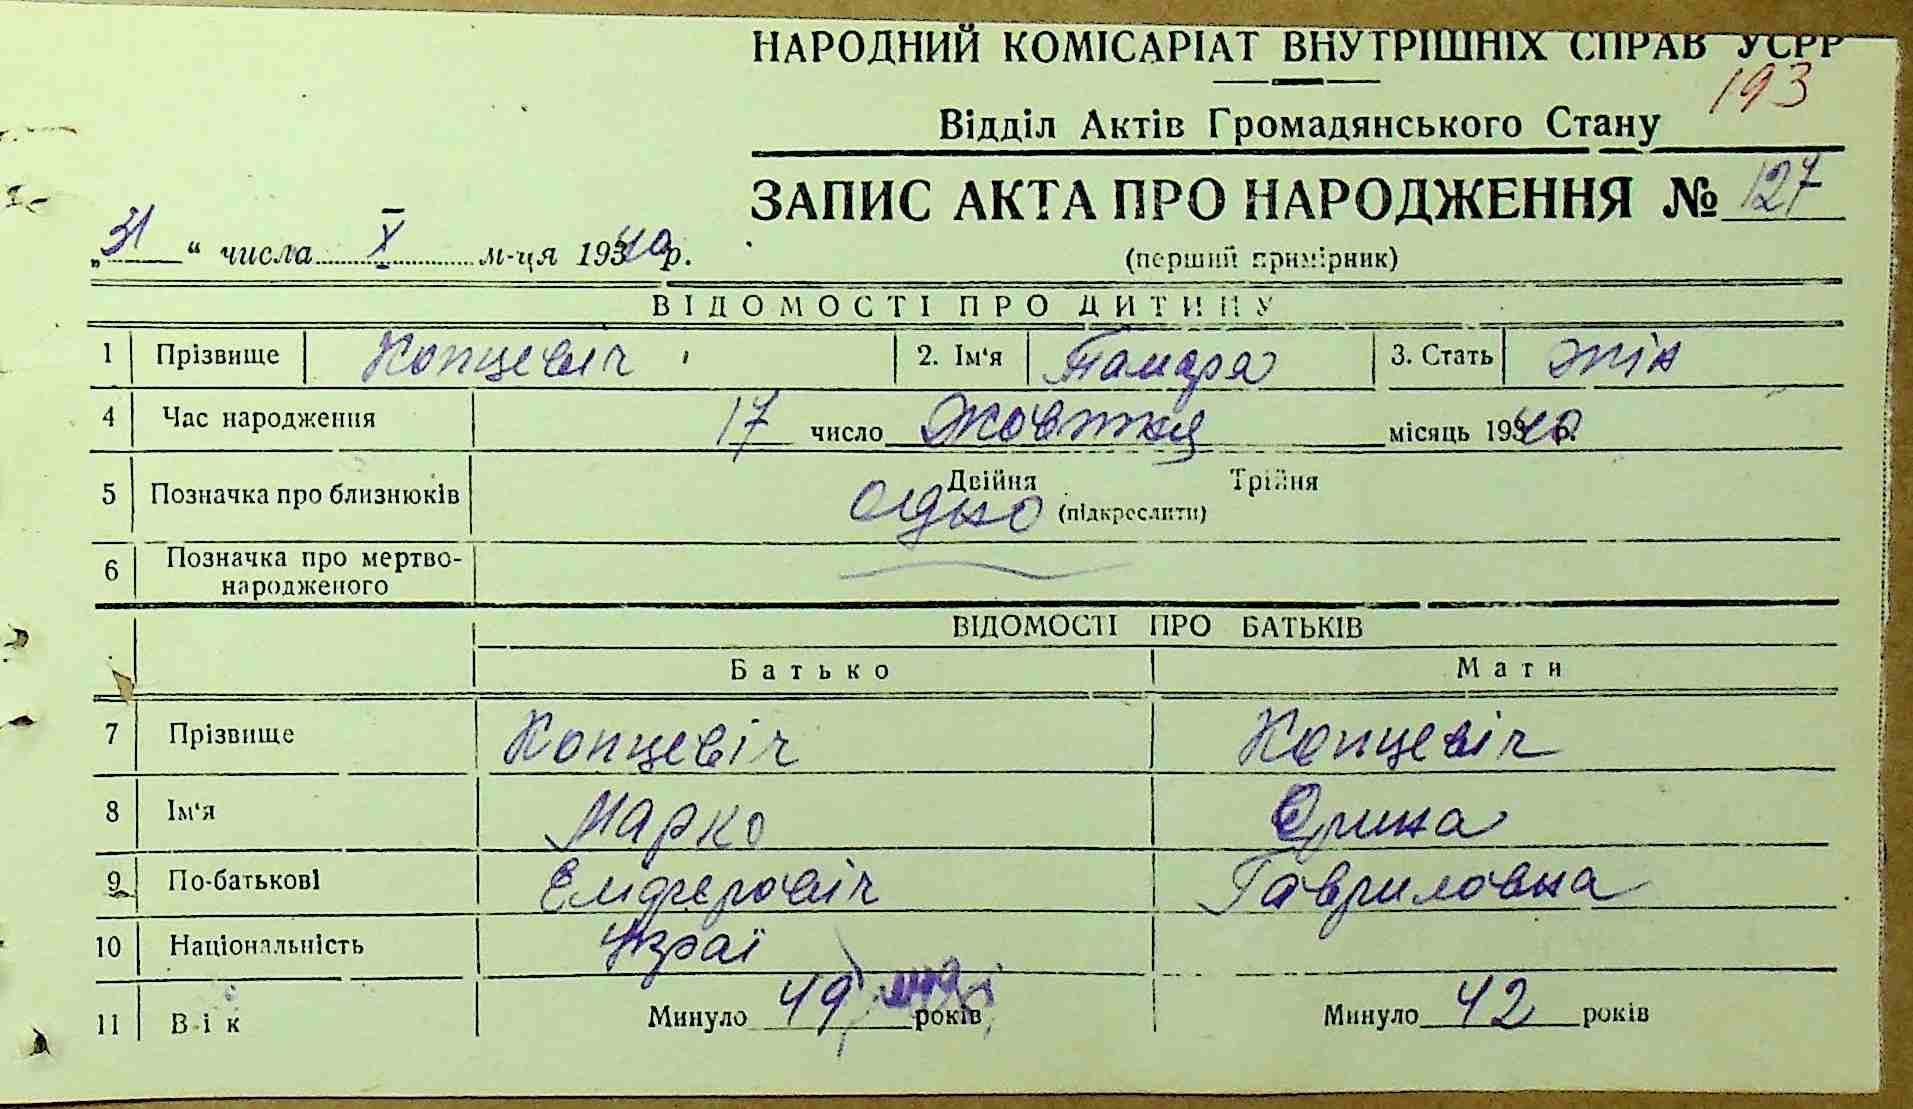 НАРОДНИЙ КОМІСАРІАТ ВНУТРІШНІХ СПРАВ УСРР
193
Відділ Актів Громадянського Стану
ЗАПИС АКТА ПРО НАРОДЖЕННЯ № 127
„31“ числа X м-ця 1940 р.
(перший примірник)
ВІДОМОСТІ ПРО ДИТИНУ
1 Прізвище Копцевич 2. Ім'я Тамара 3. Стать жін
4 Час народження 17 число Жовтня місяць 1940 р.
5 Позначка про близнюків Двійня Трійня
одно (підкреслити)
6 Позначка про мертво-
народженого
ВІДОМОСТІ ПРО БАТЬКІВ
Батько Мати
7 Прізвище Копцевіч Копцевіч
8 Ім'я Марко Орина
9 По-батькові Гавриловна
10 Національність Украї
11 Вік Минуло 49 років Минуло 42 років